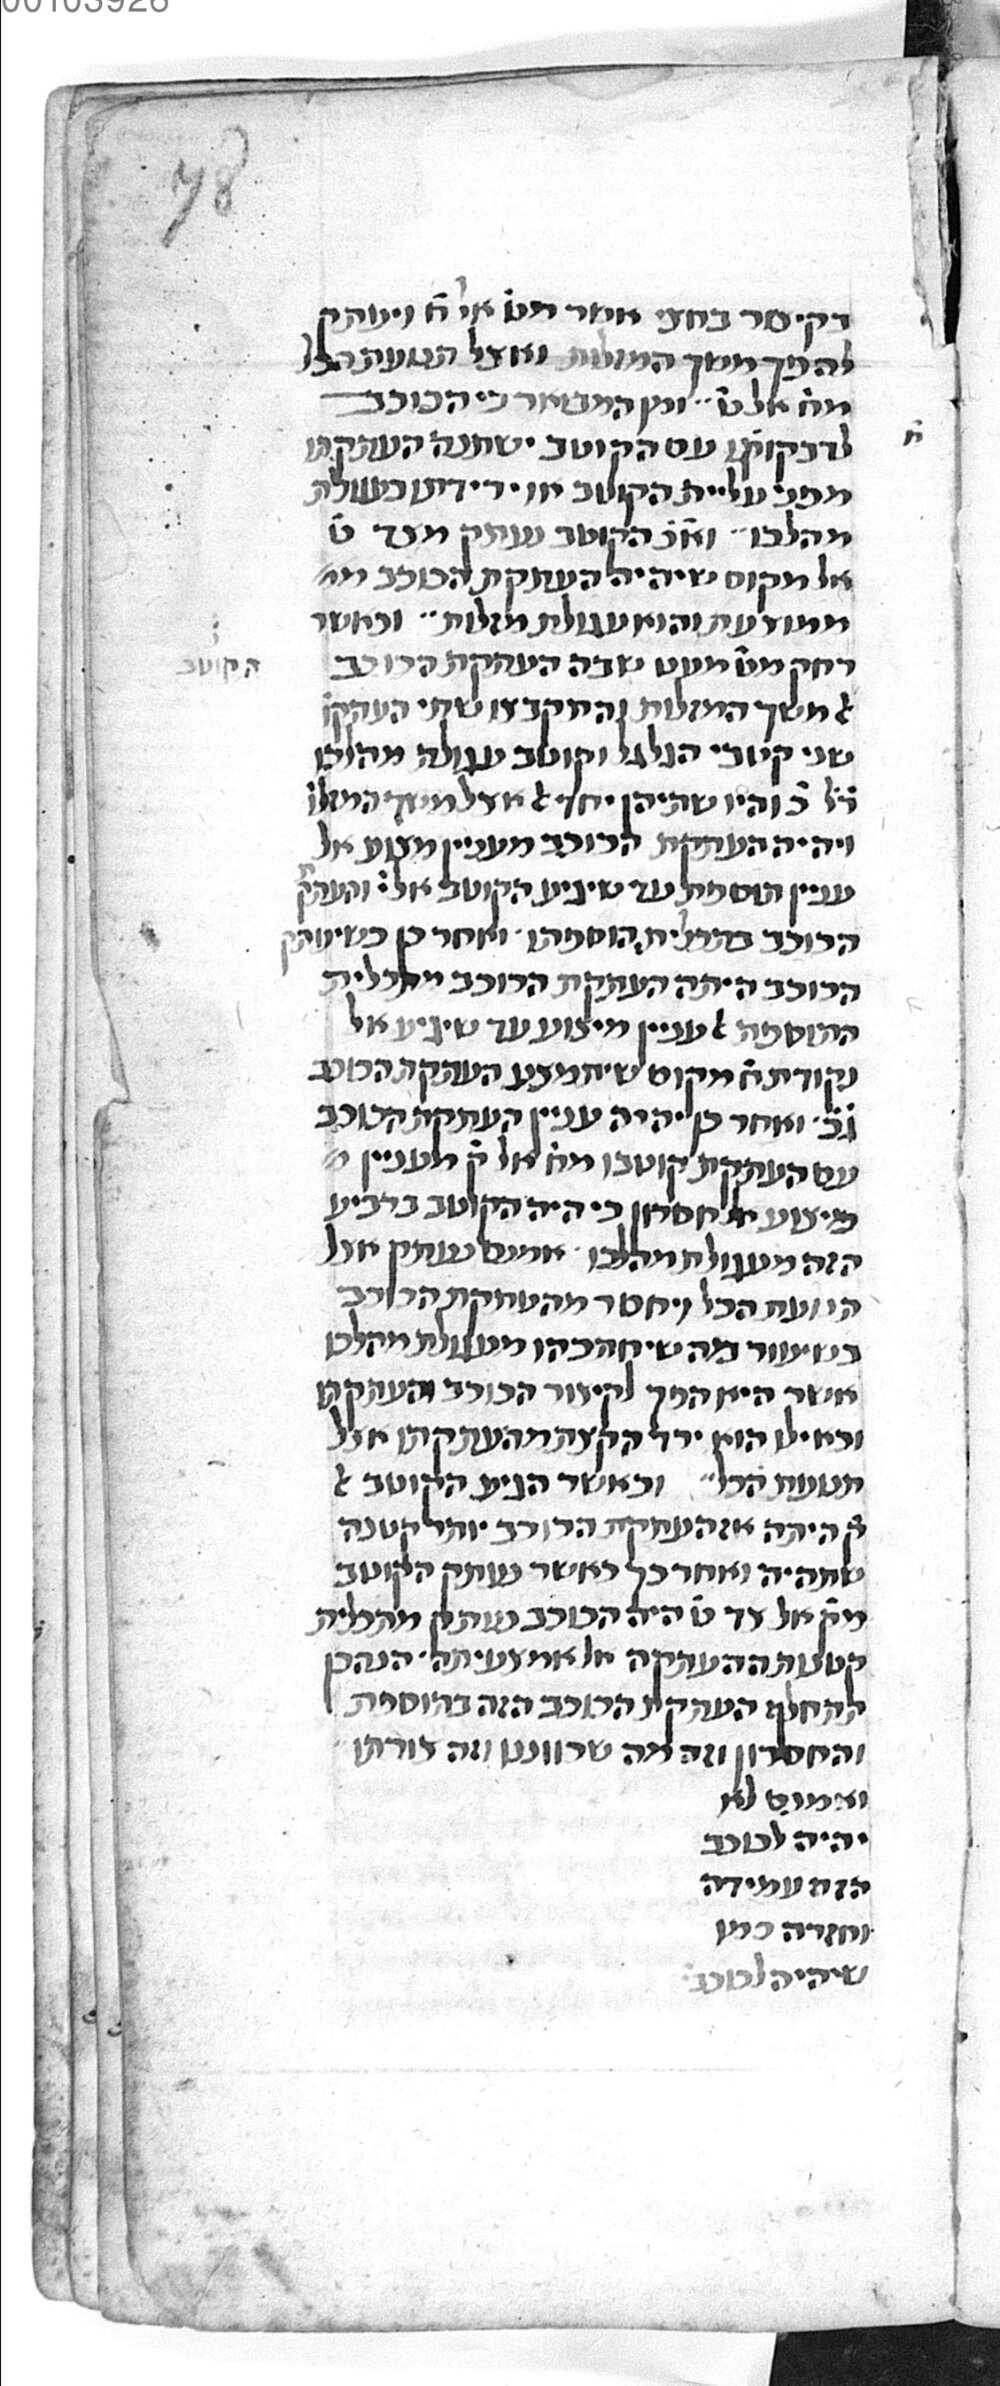 00103926
78
דקיסר בחצי אשר מט אל ח ויעתק
להפך משך המזלות ואצל תנועת הכל
מח אל ט ומן המבואר כי הכוכב
לדבקותו עם הקוטב ישתנה העתקתו
ח
מפני עליית הקוטב או ירידתו בעגולת
מהלכו הקוטב נעתק מצד ט
אל מקום שיהיה העתקת הכוכב
ממוצעת והוא עגולת מזלות וכאשר
רחק מט מעט שבה העתקת הכוכב
הקוטב
משך המזלות והתקבצו שתי העתקו
שני קוטבי הגלגל וקוטב עגולת מהלכו
והיו שתיהן יחד אצל משך המזלו
ויהיה העתקת הכוכב מעניין מצוע אל
עניין תוספת עד שיגיע הקוטב אל והעתק
הכוכב בתכלית תוספתו ואחר כן כשיעתק
הכוכב היתה העתקת הכוכב מתכלית
התוספת עניין מיצוע עד שיגיע אל
נקודת ח מקום שיתמצע העתקת הכוכב
ואחר כן יהיה עניין העתקת הכוכב
עם העתקת קוטבו מח אל מעניין
מיצוע אל חסרון כי היה הקוטב ברביע
הזה מעגולת מהלכו אמנם נעתק אצל
תנועת הכל ויחסר מהעתקת הכוכב
בשיעור מה שיחתכהו מעגולת מהלכו
אשר היא הפך לקיצור הכוכב והעתקתו
וכאילו הוא ירד קצת מהעתקתו אצל
תנועת הכל וכאשר הגיע הקוטב
היתה אז העתקת הכוכב יותר קטנה
שתהיה ואחר כך כאשר נעתק הקוטב
אל צד ט היה הכוכב נעתק מתכלית
קטנות ההעתקה אל אמצעיתה הנה כן
התחלף העתקת הכוכב הזה בתוספת
והחסרון וזה מה שכווננו וזה צורתו
ואמנם לא
יהיה לכוכב
הזה עמידה
וחזרה כמו
שיהיה לכוכב